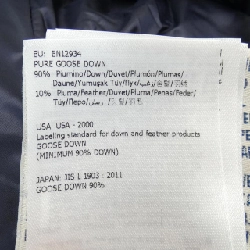 EU: EN12934
PURE GOOSE DOWN
90% Piumino/Down/Duvet/Plumón/Plumas/
Daune/Yumuşak Tüy/Пух/زغب/솜털/羽绒
10% Piuma/Feather/Duvet/Pluma/Penas/Feder/
Tüy/Перо/ریش/깃털/羽毛
USA: USA - 2000
Labeling standard for down and feather products
GOOSE DOWN
(MINIMUM 90% DOWN)
JAPAN: JIS L 1903 : 2011
GOOSE DOWN 90%